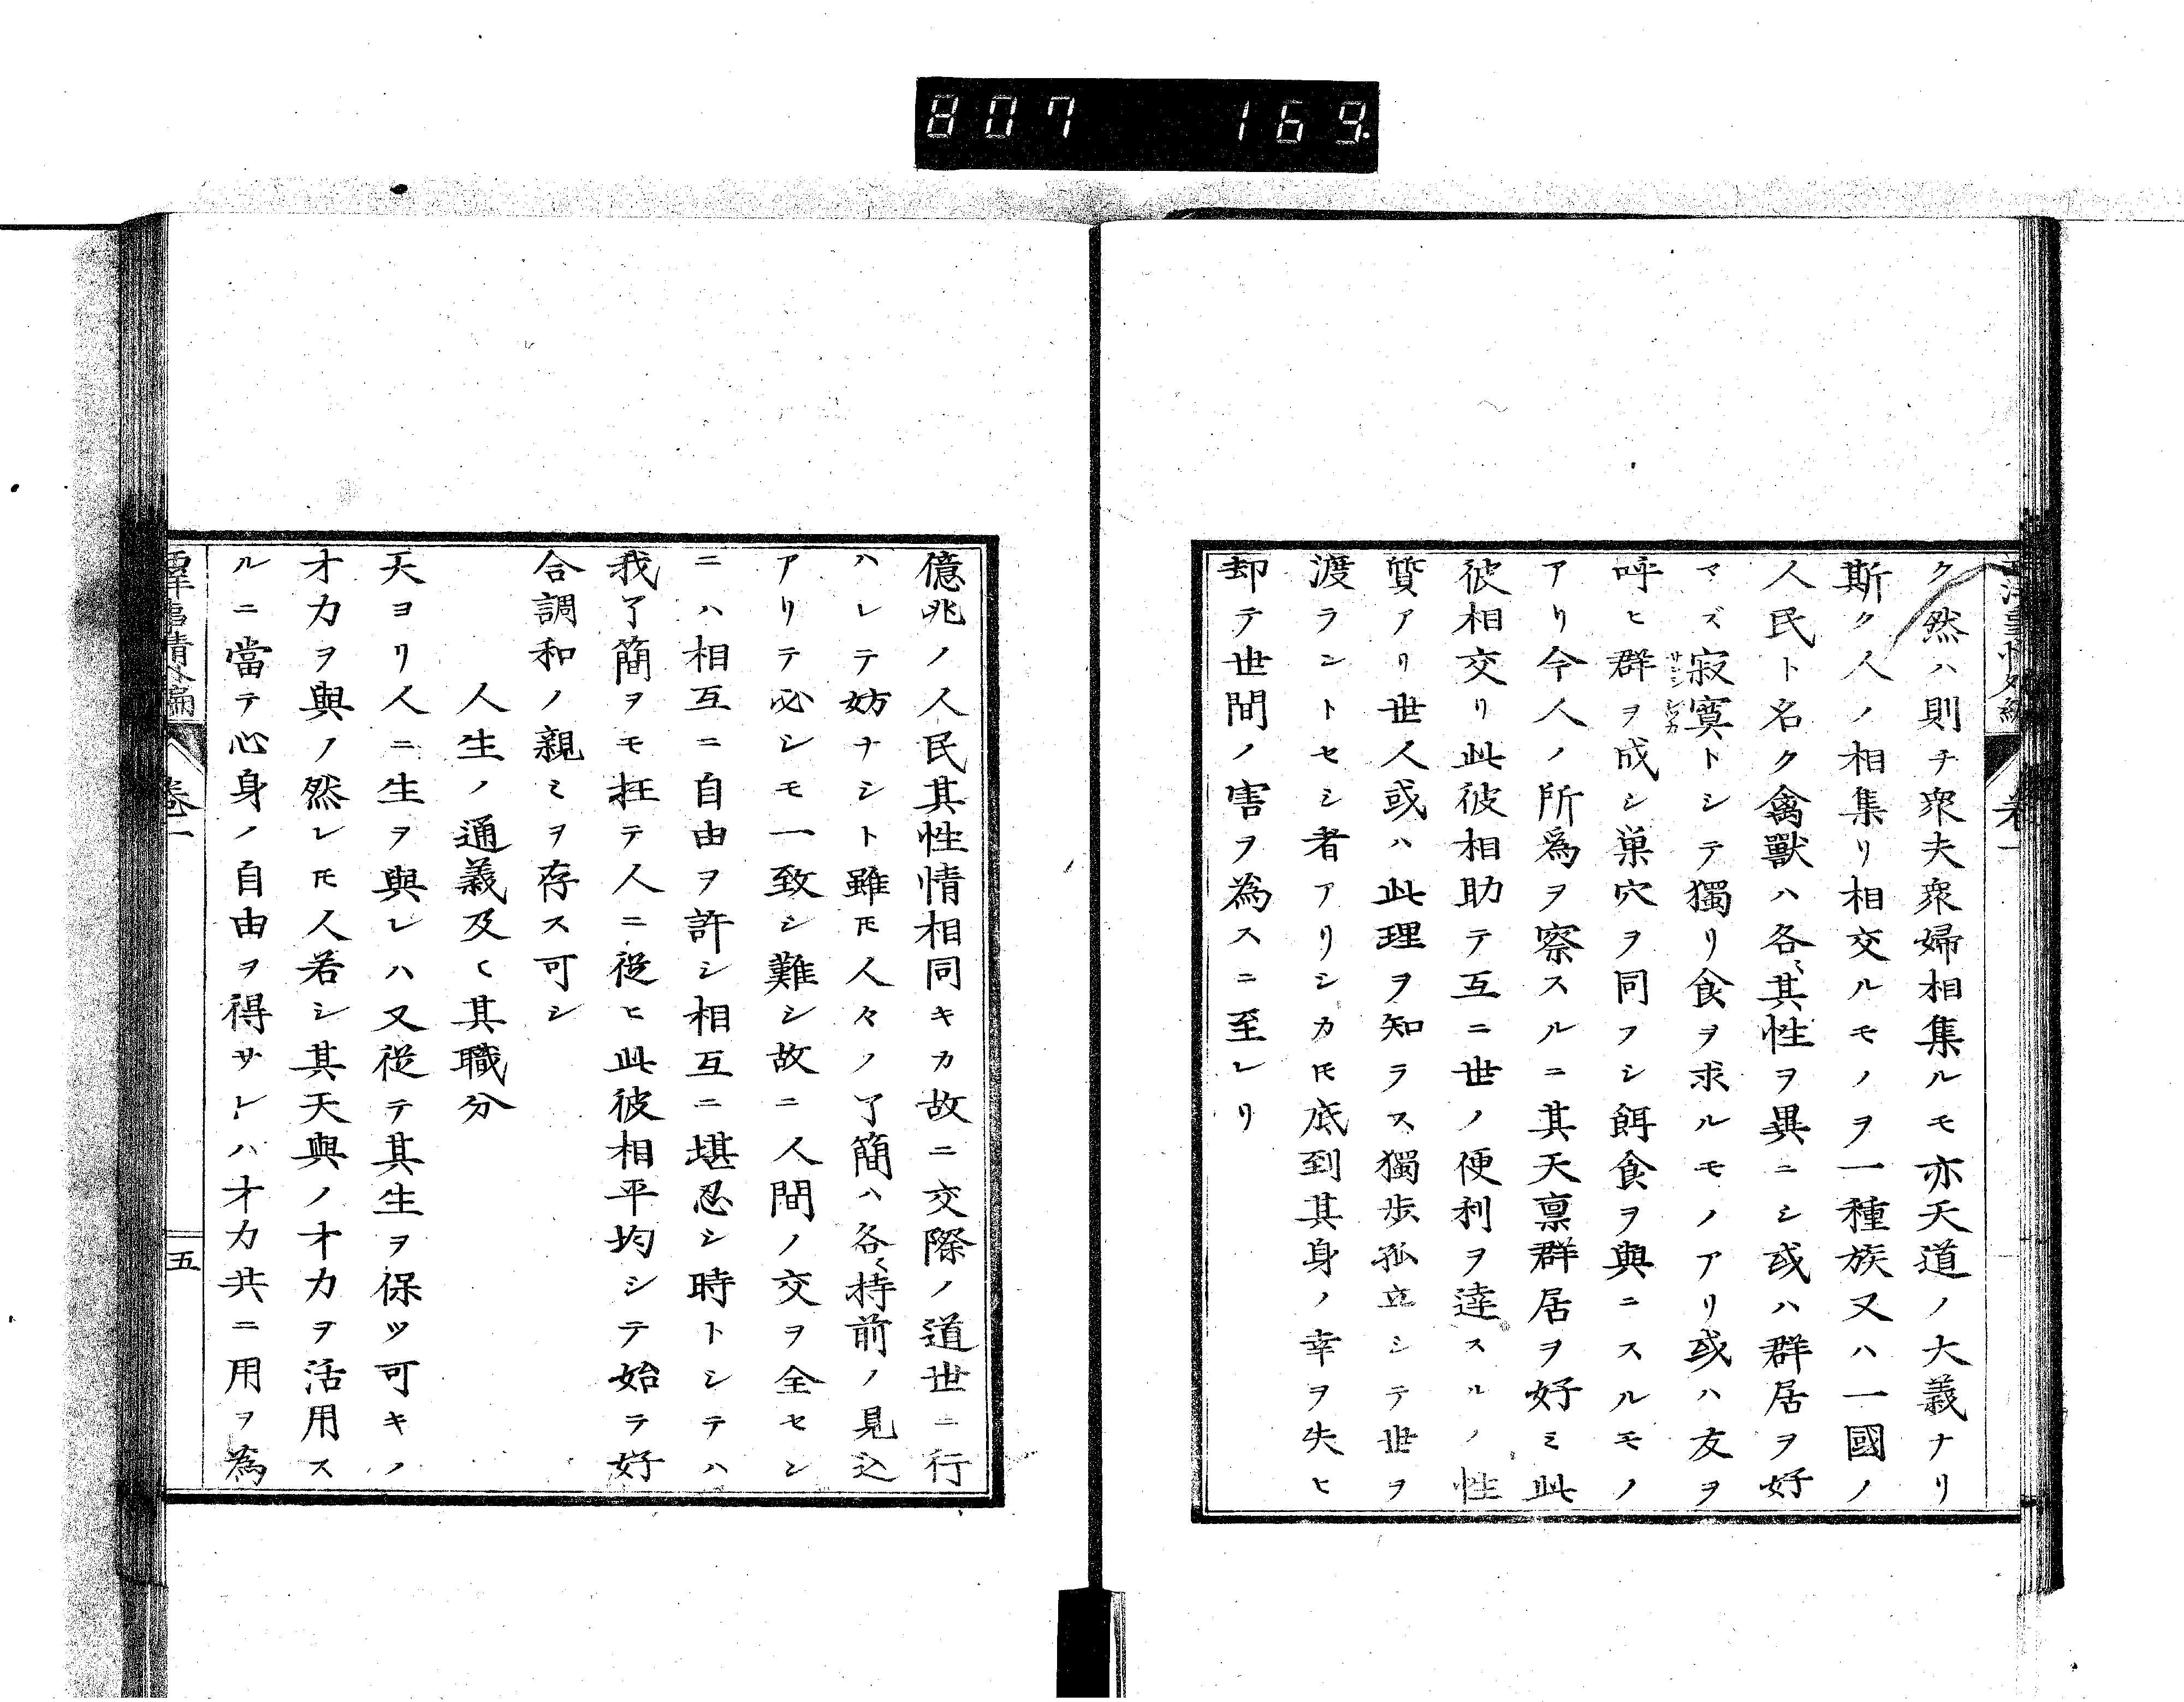 807 169.
西洋事情外編 卷一
ク然ハ則チ衆夫衆婦相集ルモ亦天道ノ大義ナリ
斯ク人ノ相集リ相交ルモノヲ一種族又ハ一國ノ
人民ト名ク禽獸ハ各〻其性ヲ異ニシ或ハ群居ヲ好
マズ寂寞トシテ獨リ食ヲ求ルモノアリ或ハ友ヲ
呼ヒ群ヲ成シ巢穴ヲ同フシ餌食ヲ與ニスルモノ
アリ今人ノ所爲ヲ察スルニ其天禀群居ヲ好ミ此
彼相交リ此彼相助テ互ニ世ノ便利ヲ達スルノ性
質アリ世人或ハ此理ヲ知ラス獨歩孤立シテ世ヲ
渡ラントセシ者アリシカ𪜈底到其身ノ幸ヲ失ヒ
却テ世間ノ害ヲ為スニ至レリ
億兆ノ人民其性情相同キカ故ニ交際ノ道世ニ行
ハレテ妨ナシト雖𪜈人々ノ了簡ハ各〻持前ノ見込
アリテ必シモ一致シ難シ故ニ人間ノ交ヲ全セン
ニハ相互ニ自由ヲ許シ相互ニ堪忍シ時トシテハ
我了簡ヲモ枉テ人ニ從ヒ此彼相平均シテ始テ好
合調和ノ親ミヲ存ス可シ
人生ノ通義及ヒ其職分
天ヨリ人ニ生ヲ與レハ又從テ其生ヲ保ツ可キノ
才力ヲ與ノ然レ𪜈人若シ其天與ノ才力ヲ活用ス
ルニ當テ心身ノ自由ヲ得サレハ才力共ニ用ヲ為
西洋事情外編 卷一 五